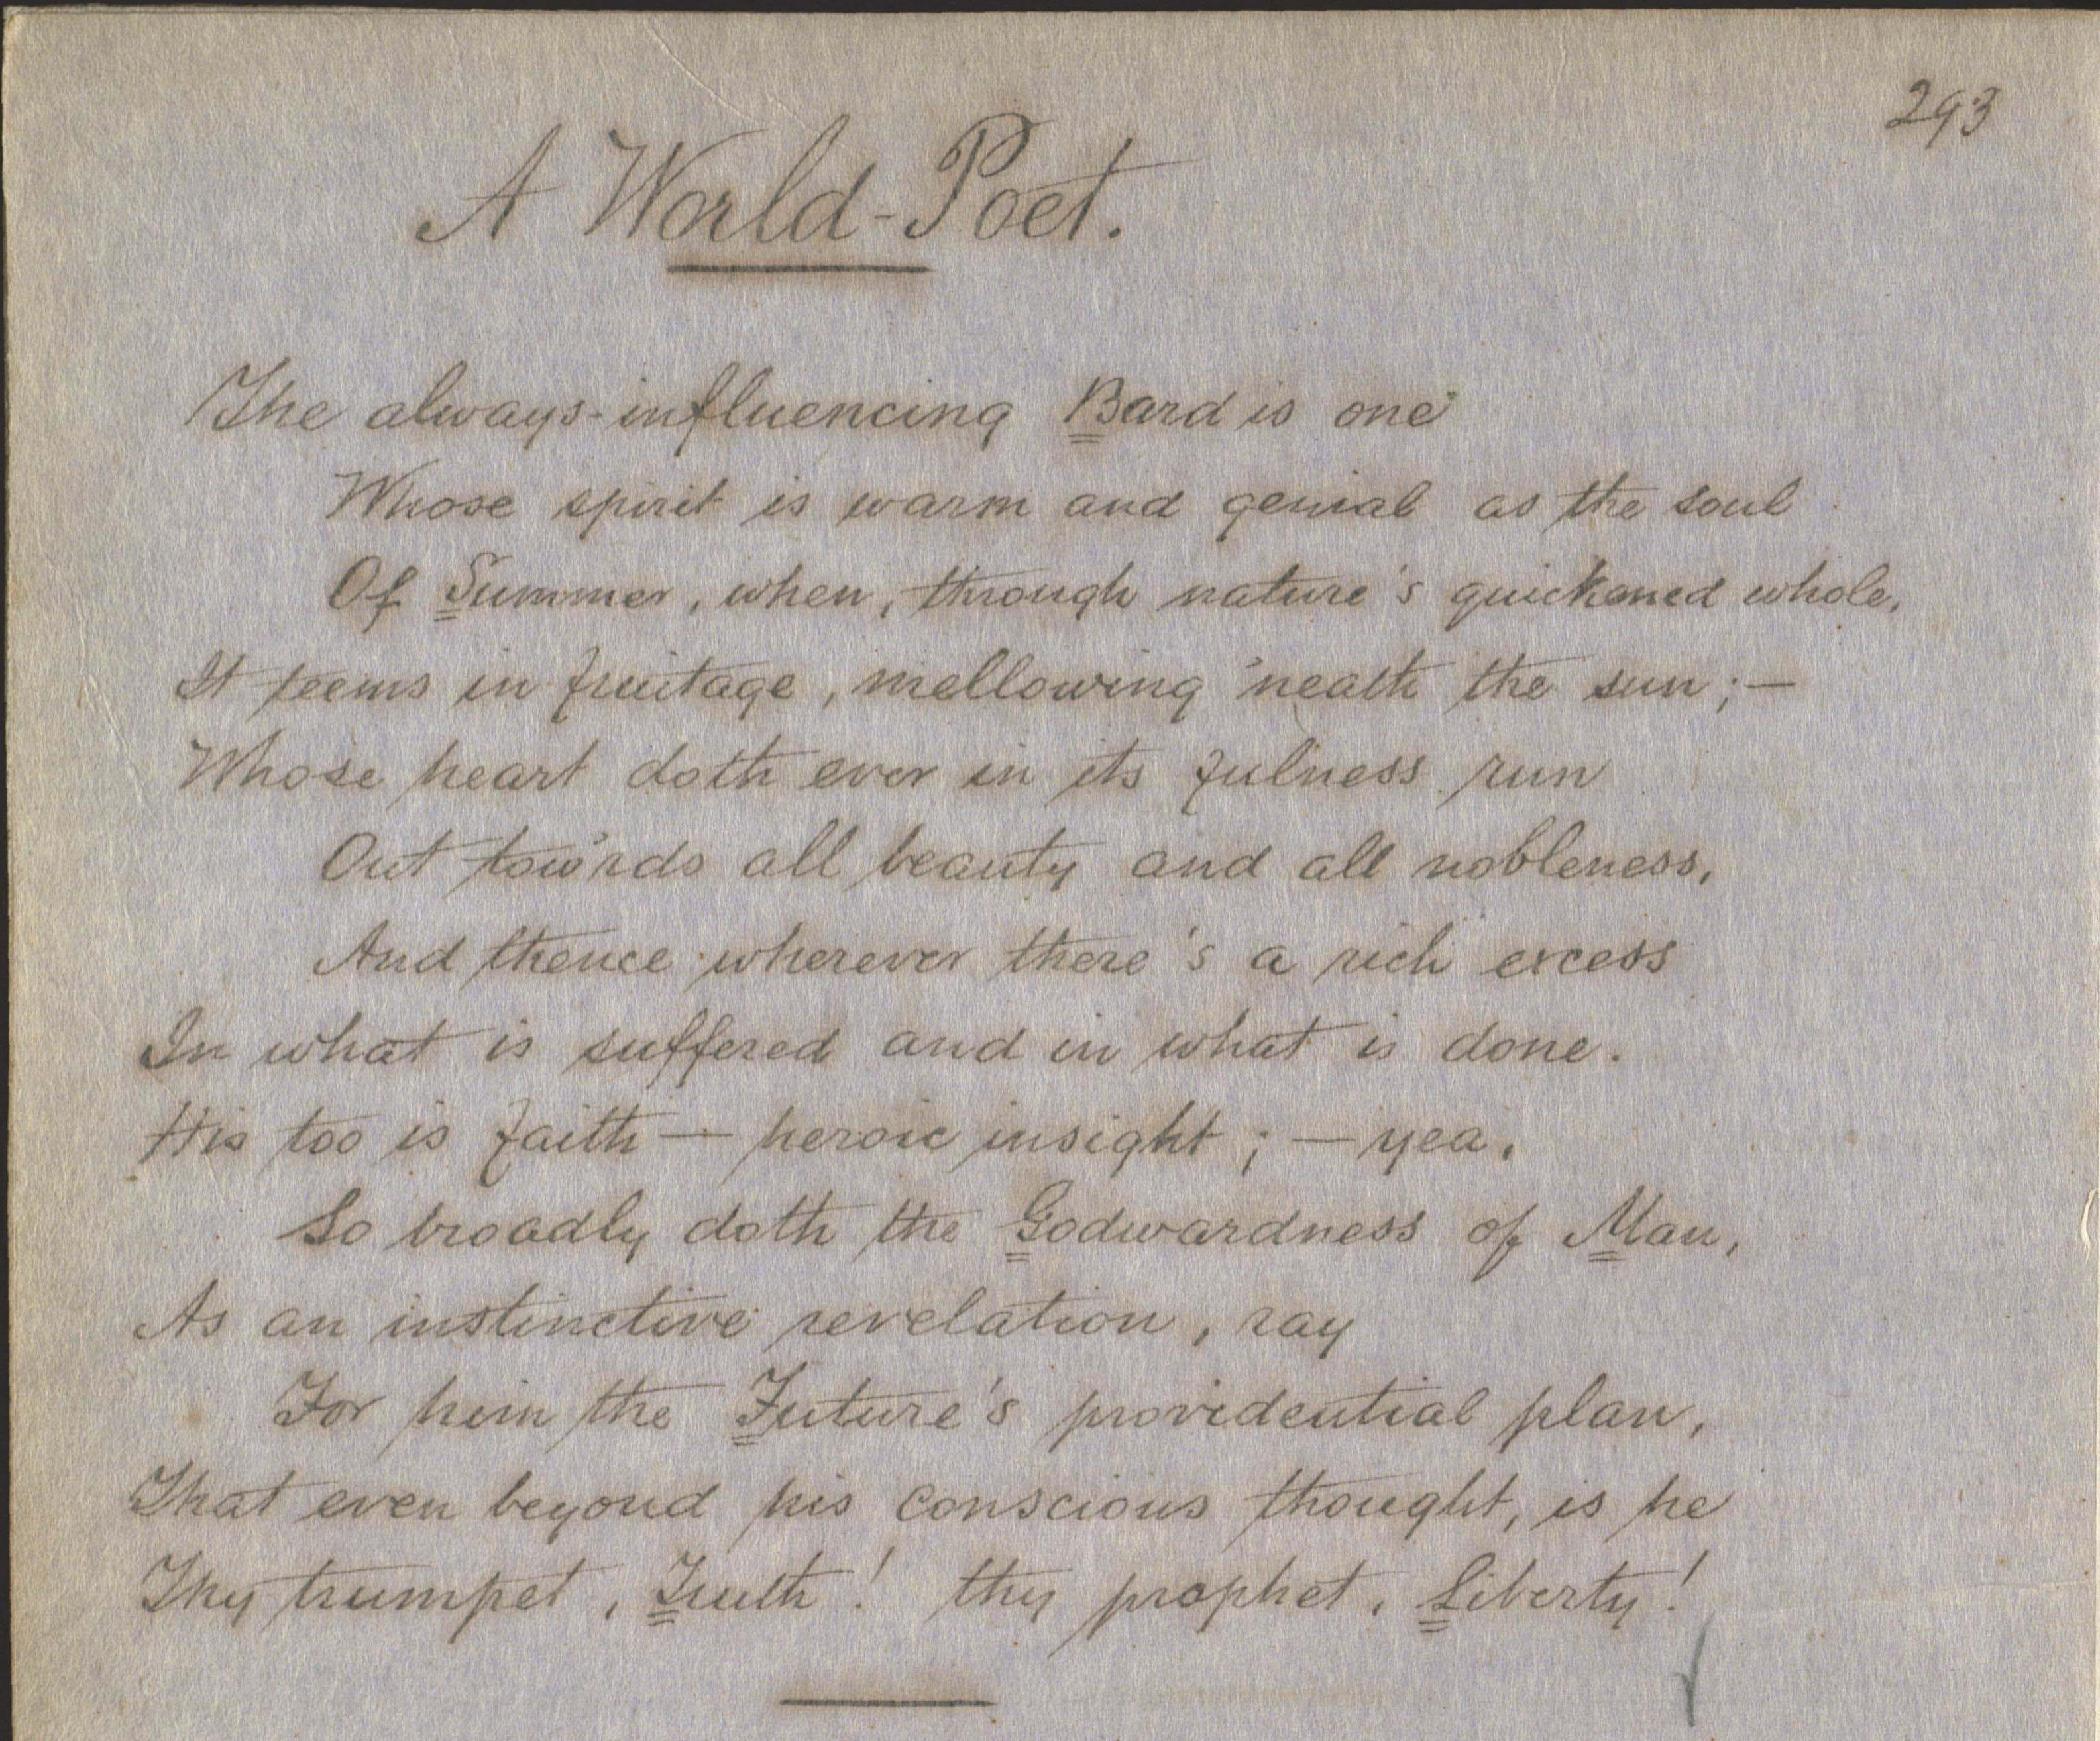 293
A World-Poet.
The always-influencing Bard is one
Whose spirit is warm and genial as the soul
Of Summer, when, through nature's quickened whole,
It teems in fruitage, mellowing 'neath the sun;—
Whose heart doth ever in its fulness run
Out tow'rds all beauty and all nobleness,
And thence wherever there's a rich excess
In what is suffered and in what is done.
His too is faith — heroic insight; — yea,
So broadly doth the Godwardness of Man,
As an instinctive revelation, ray
For him the Future's providential plan,
That even beyond his conscious thought, is he
Thy trumpet, Truth! thy prophet, Liberty!